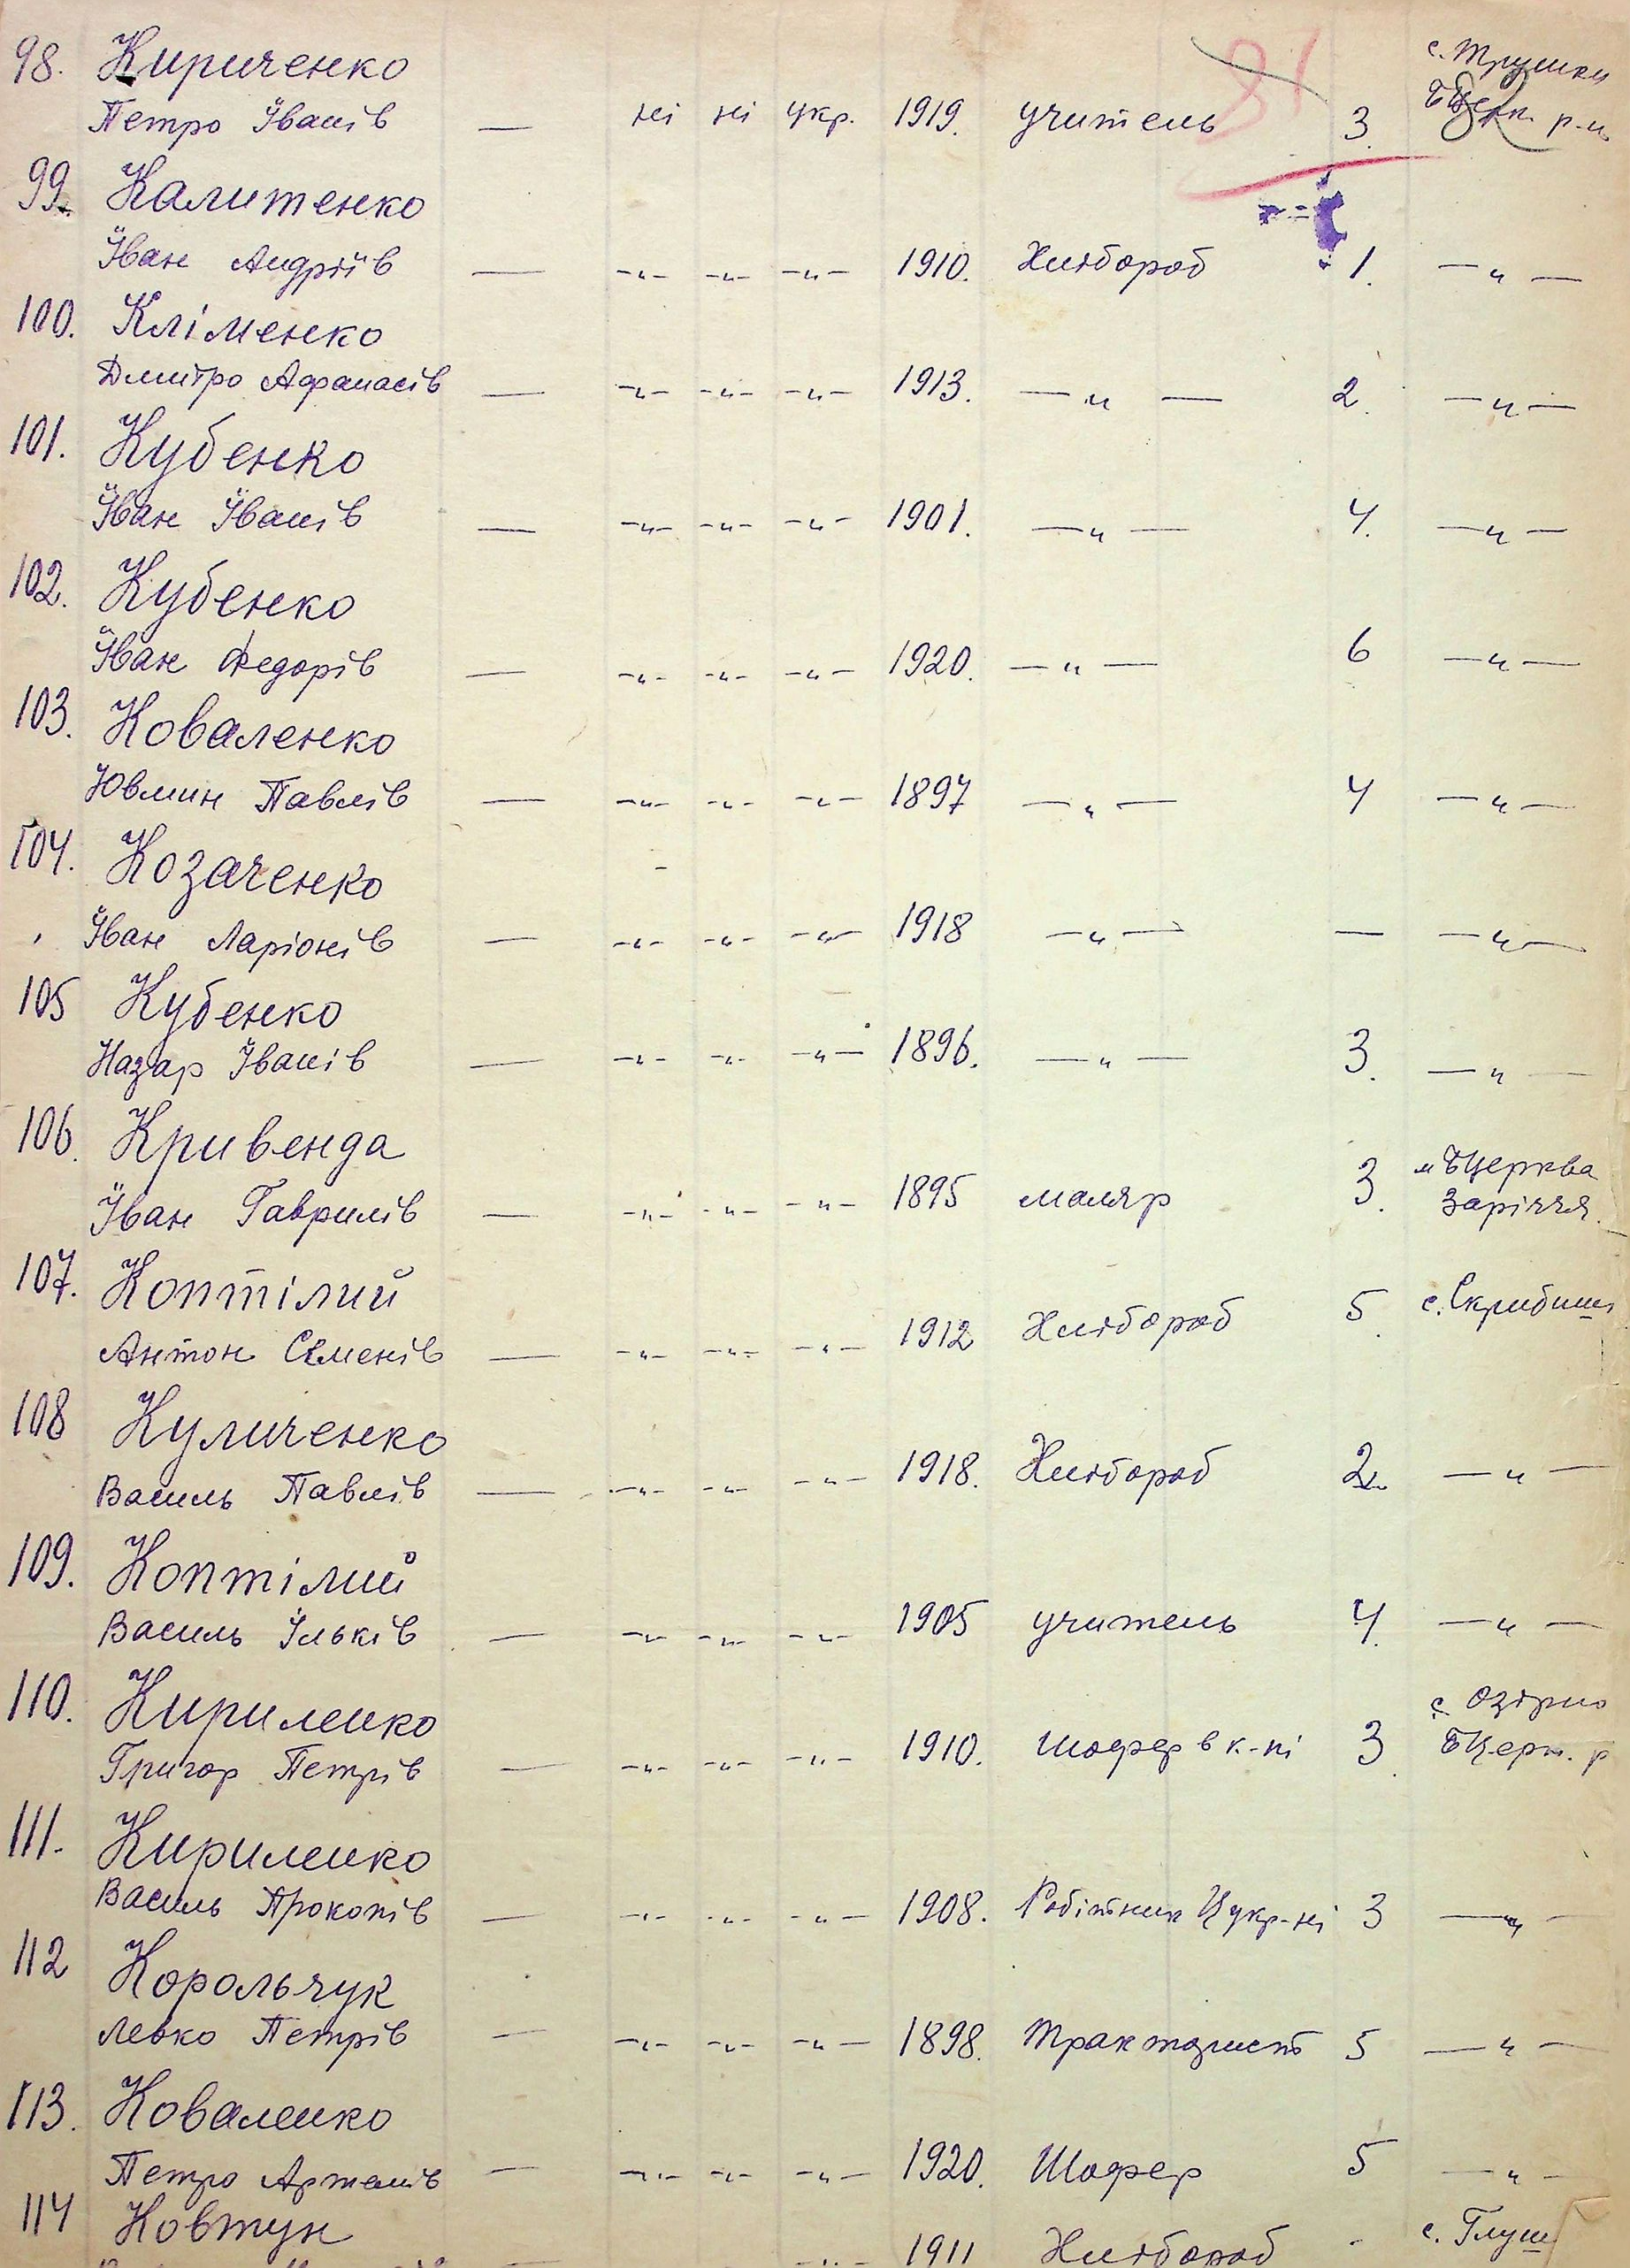 81
98. Кириченко с. Трушки
Петро Їванів — ні ні укр. 1919. учитель 3. БЦерк. р-н
99. Калитенко
Їван Андріїв — -„- -„- -„- 1910. Хлібороб 1. —„—
100. Кліменко
Дмитро Афанасів — -„- -„- -„- 1913. —„— 2. —„—
101. Кубенко
Їван Їванів — -„- -„- -„- 1901. —„— 4. —„—
102. Кубенко
Їван Федорів — -„- -„- -„- 1920. —„— 6 —„—
103. Коваленко
Ювмин Павлів — -„- -„- -„- 1897 —„— 4 —„—
104. Козаченко
Їван Ларіонів — -„- -„- -„- 1918 —„— — —„—
105 Кубенко
Назар Їванів — -„- -„- -„- 1896. —„— 3. —„—
106. Кривенда м БЦерква
Їван Гаврилів — -„- -„- -„- 1895 маляр 3. Заріччя.
107. Коптілий
Антон Семенів — -„- -„- -„- 1912 Хлібороб 5. с. Скрибиші
108 Куличенко
Василь Павлів — -„- -„- -„- 1918. Хлібороб 2. —„—
109. Коптілий
Василь Ільків — -„- -„- -„- 1905 учитель 4. —„—
110. Кириленко с. Озірно
Григор Петрів — -„- -„- -„- 1910. Шофер в к-пі 3. БЦерк. р
111. Кириленко
Василь Прокопів — -„- -„- -„- 1908. Робітник Цукр-ні 3 —„—
112 Корольчук
Левко Петрів — -„- -„- -„- 1898. Тракторист 5 —„—
113. Коваленко
Петро Артемів — -„- -„- -„- 1920. Шофер 5 —„—
114 Ковтун с. Глуш
1911 Хлібороб -